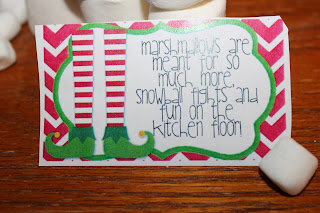 marshmallows are
meant for so
much more,
snowball fights and
fun on the
kitchen floor!